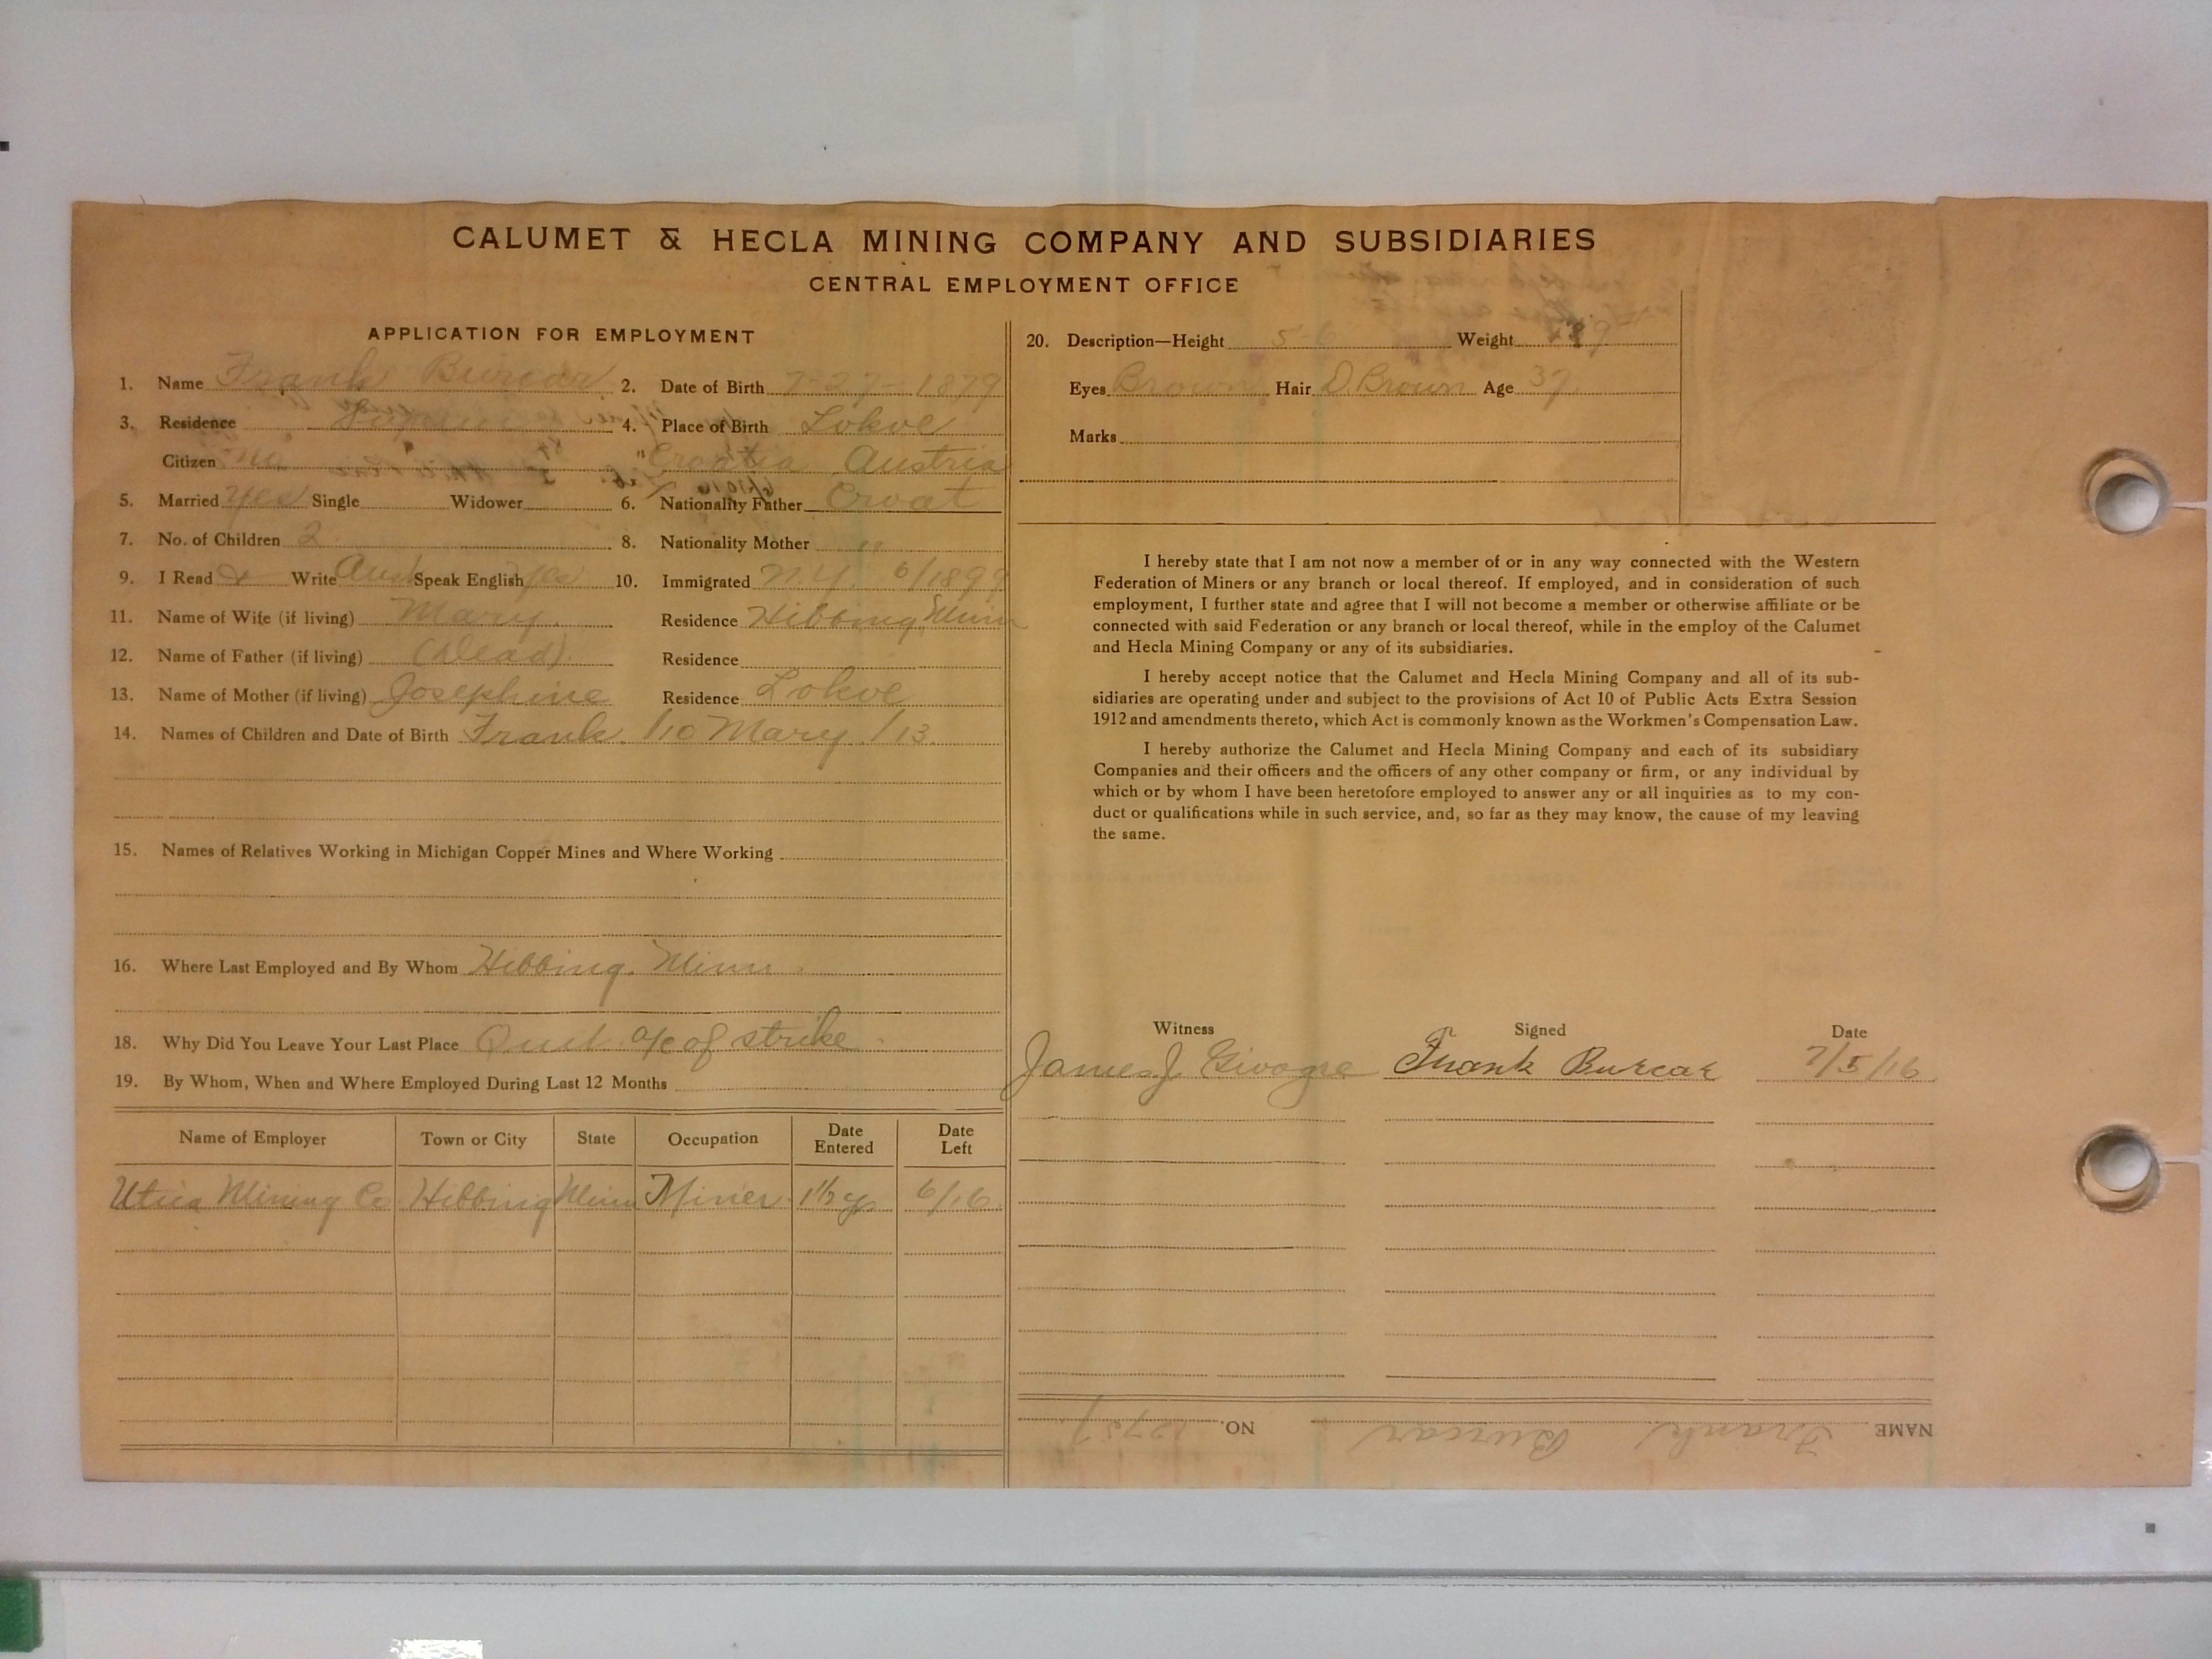 CALUMET & HECLA MINING COMPANY AND SUBSIDIARIES
CENTRAL EMPLOYMENT OFFICE
APPLICATION FOR EMPLOYMENT
1. Name Frank Burcar 2. Date of Birth 7-27-1879
3. Residence 4. Place of Birth Lokve
Citizen no Croatia Austria
5. Married Yes Single Widower 6. Nationality Father Croat
7. No. of Children 2 8. Nationality Mother "
9. I Read & Write Aust Speak English yes 10. Immigrated N.Y. 6/1899
11. Name of Wife (if living) Mary. Residence Hibbing Minn
12. Name of Father (if living) (Dead) Residence
13. Name of Mother (if living) Josephine Residence Lokve
14. Names of Children and Date of Birth Frank. /10 Mary. /13.
15. Names of Relatives Working in Michigan Copper Mines and Where Working
16. Where Last Employed and By Whom Hibbing. Minn.
18. Why Did You Leave Your Last Place Quit a/c of strike
19. By Whom, When and Where Employed During Last 12 Months
Name of Employer Town or City State Occupation Date Entered Date Left
Utica Mining Co. Hibbing Minn Miner 1½ y 6/16
20. Description—Height 5-6 Weight
Eyes Brown Hair D. Brown Age 37
Marks
I hereby state that I am not now a member of or in any way connected with the Western
Federation of Miners or any branch or local thereof. If employed, and in consideration of such
employment, I further state and agree that I will not become a member or otherwise affiliate or be
connected with said Federation or any branch or local thereof, while in the employ of the Calumet
and Hecla Mining Company or any of its subsidiaries.
I hereby accept notice that the Calumet and Hecla Mining Company and all of its sub-
sidiaries are operating under and subject to the provisions of Act 10 of Public Acts Extra Session
1912 and amendments thereto, which Act is commonly known as the Workmen's Compensation Law.
I hereby authorize the Calumet and Hecla Mining Company and each of its subsidiary
Companies and their officers and the officers of any other company or firm, or any individual by
which or by whom I have been heretofore employed to answer any or all inquiries as to my con-
duct or qualifications while in such service, and, so far as they may know, the cause of my leaving
the same.
Witness Signed Date
James J. Frank Burcar 7/5/16
NAME Frank Burcar NO.